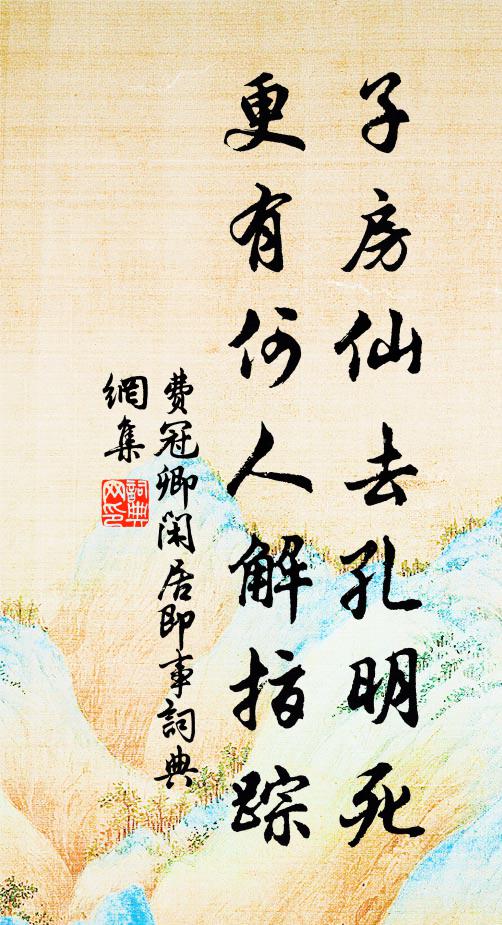 子房仙去孔明死
更有何人解指踪
費冠卿閑居即事詞典
網集
詞典
网印